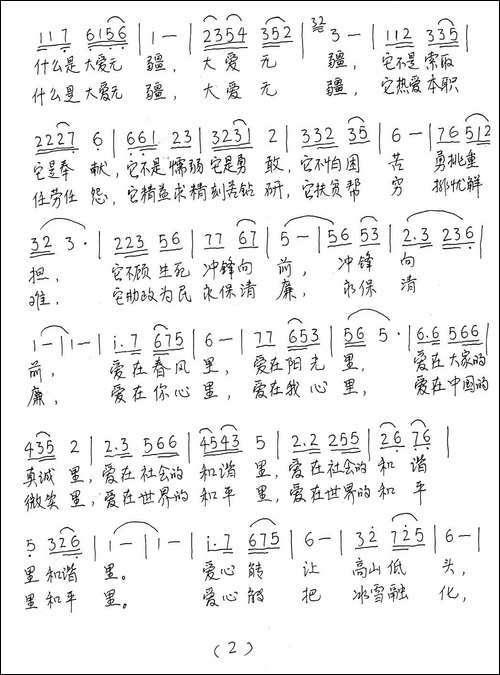 1 1 7 6 1 5 6 | 1 — | 2 3 5 4 3 5 2 | 3 2 3 — | 1 1 2 3 3 5 |
什么是大爱无 疆， 大 爱 无 疆， 它不是 索取
什么是大爱无 疆， 大 爱 无 疆， 它热爱本职
2 2 2 7 6 | 6 6 1 2 3 | 3 2 3 1 2 | 3 3 2 3 5 | 6 — | 7 6 5 1 2 |
它是奉 献，它不是 懦弱 它是勇 敢，它不怕困 苦 勇挑重
任劳任 怨，它精益求精刻苦钻 研，它扶贫帮 穷 排忧解
3 2 3 · | 2 2 3 5 6 | 7 7 6 7 | 5 — | 5 6 5 3 | 2 . 3 2 3 6 |
担， 它不顾 生死 冲锋向 前， 冲锋 向
难， 它助政为民 永保清 廉， 永保 清
1 — | 1 — | i . 7 6 7 5 | 6 — | 7 7 6 5 3 | 5 6 5 · | 6 . 6 5 6 6 |
前， 爱在春风 里， 爱在阳光 里， 爱在大家的
廉， 爱在你心 里， 爱在我心 里， 爱在中国的
4 3 5 2 | 2 . 3 5 6 6 | 4 5 4 3 5 | 2 . 2 2 5 5 | 2 6 7 6 |
真诚 里，爱在社会的 和谐 里，爱在社会的 和 谐
微笑 里，爱在世界的 和平 里，爱在世界的 和 平
5 3 2 6 | 1 — | 1 — | i . 7 6 7 5 | 6 — | 3 2 7 2 5 | 6 — |
里 和谐 里。 爱心 能 让 高山 低 头，
里 和平 里。 爱心 能 把 冰雪融 化，
（2）